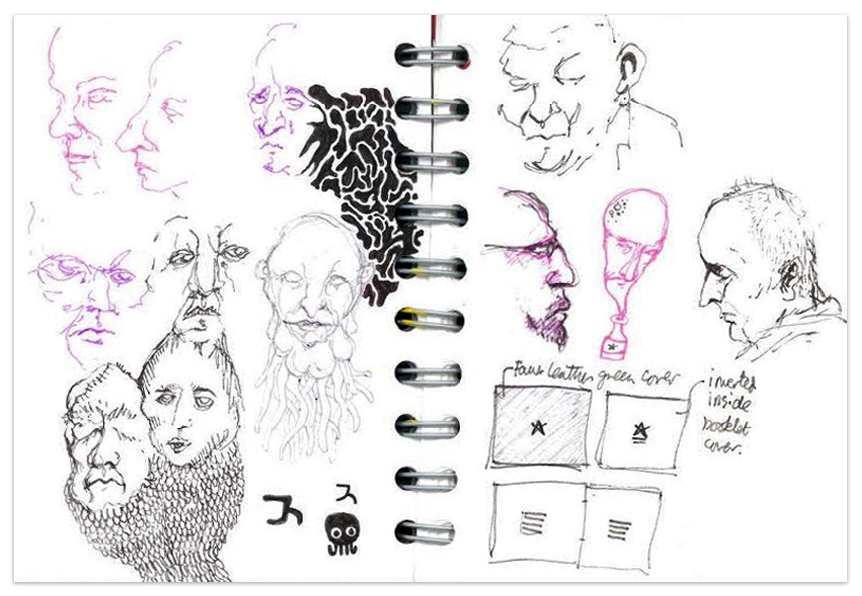 Faux leather green cover
inverted
inside
booklet
cover.